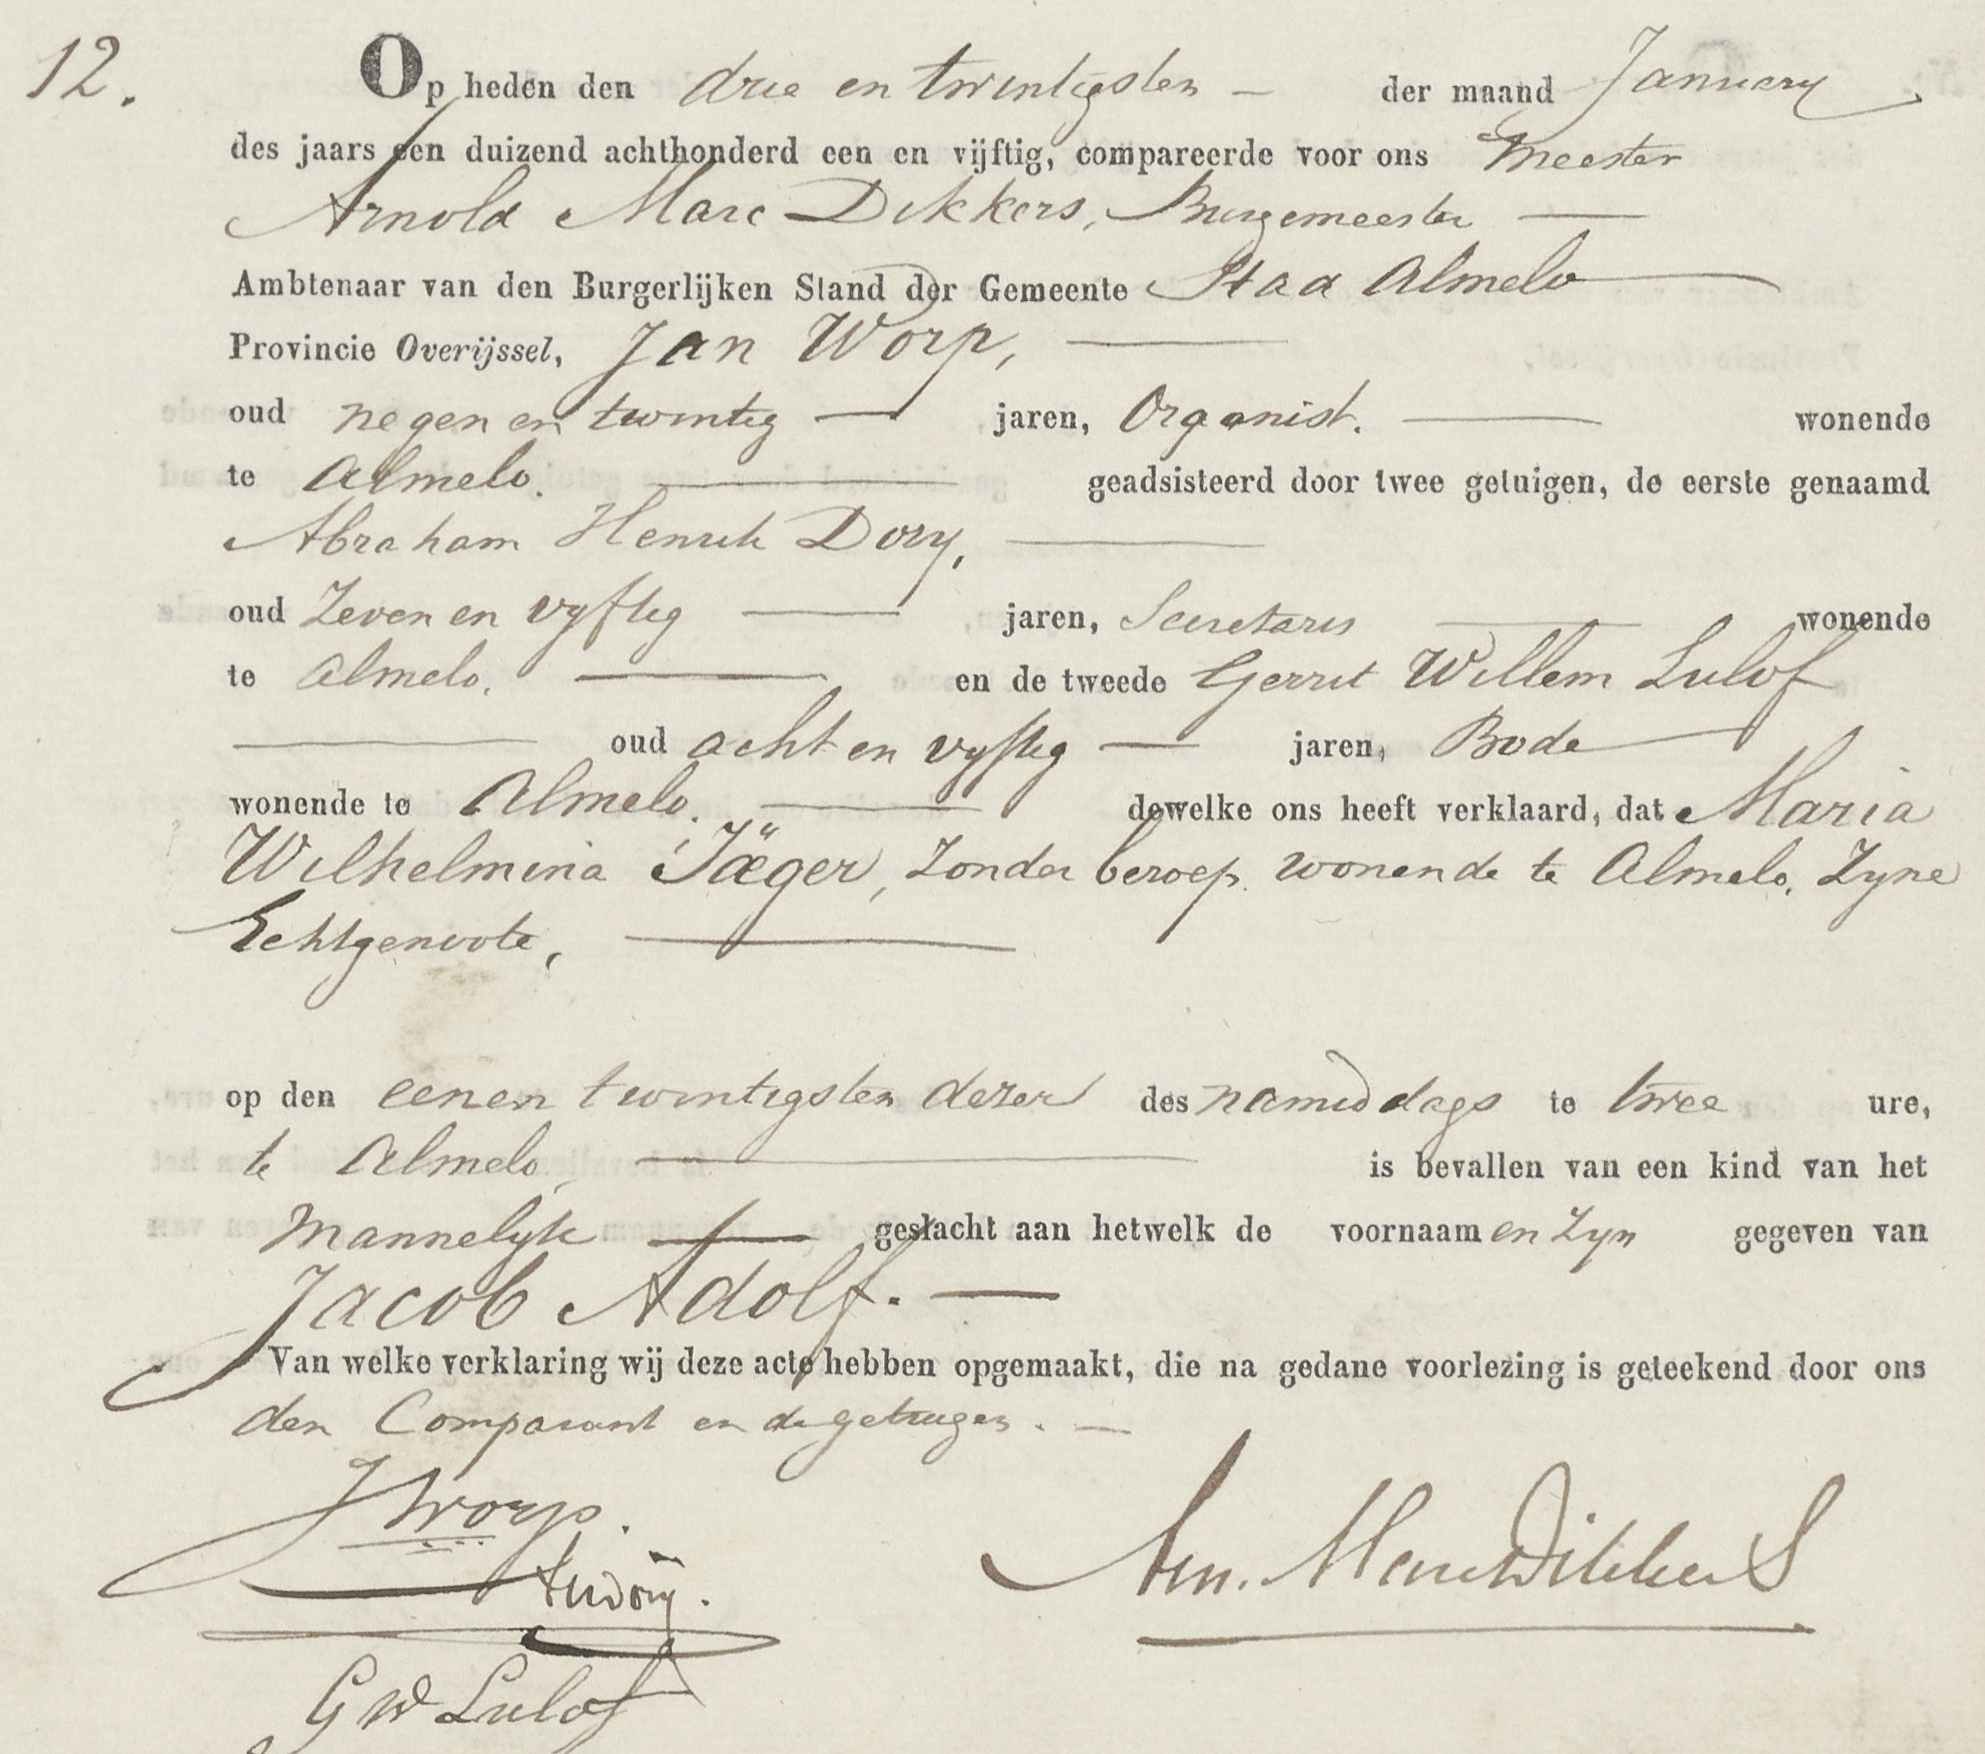 12.
Op heden den drie en twintigsten der maand January
des jaars een duizend achthonderd een en vijftig, compareerde voor ons Meester
Arnold Marc Dikkers, Burgemeester
Ambtenaar van den Burgerlijken Stand der Gemeente Stad Almelo
Provincie Overijssel, Jan Worp,
oud negen en twintig jaren, Organist. wonende
te Almelo. geadsisteerd door twee getuigen, de eerste genaamd
Abraham Henrik Dory,
oud Zeven en vyftig jaren, Secretaris wonende
te Almelo. en de tweede Gerrit Willem Lulof
oud acht en vyftig jaren, Bode
wonende te Almelo. dewelke ons heeft verklaard, dat Maria
Wilhelmina Jäger, Zonder beroep wonende te Almelo, Zyne
Echtgenoote,
op den eenen twintigsten dezer des namiddags te twee ure,
te Almelo, is bevallen van een kind van het
Mannelyk geslacht aan hetwelk de voornaamen Zyn gegeven van
Jacob Adolf.
Van welke verklaring wij deze acte hebben opgemaakt, die na gedane voorlezing is geteekend door ons
den Comparant en de getuigen.
JWorp.
AHDory.
Arn. Marc Dikkers
GW Lulof